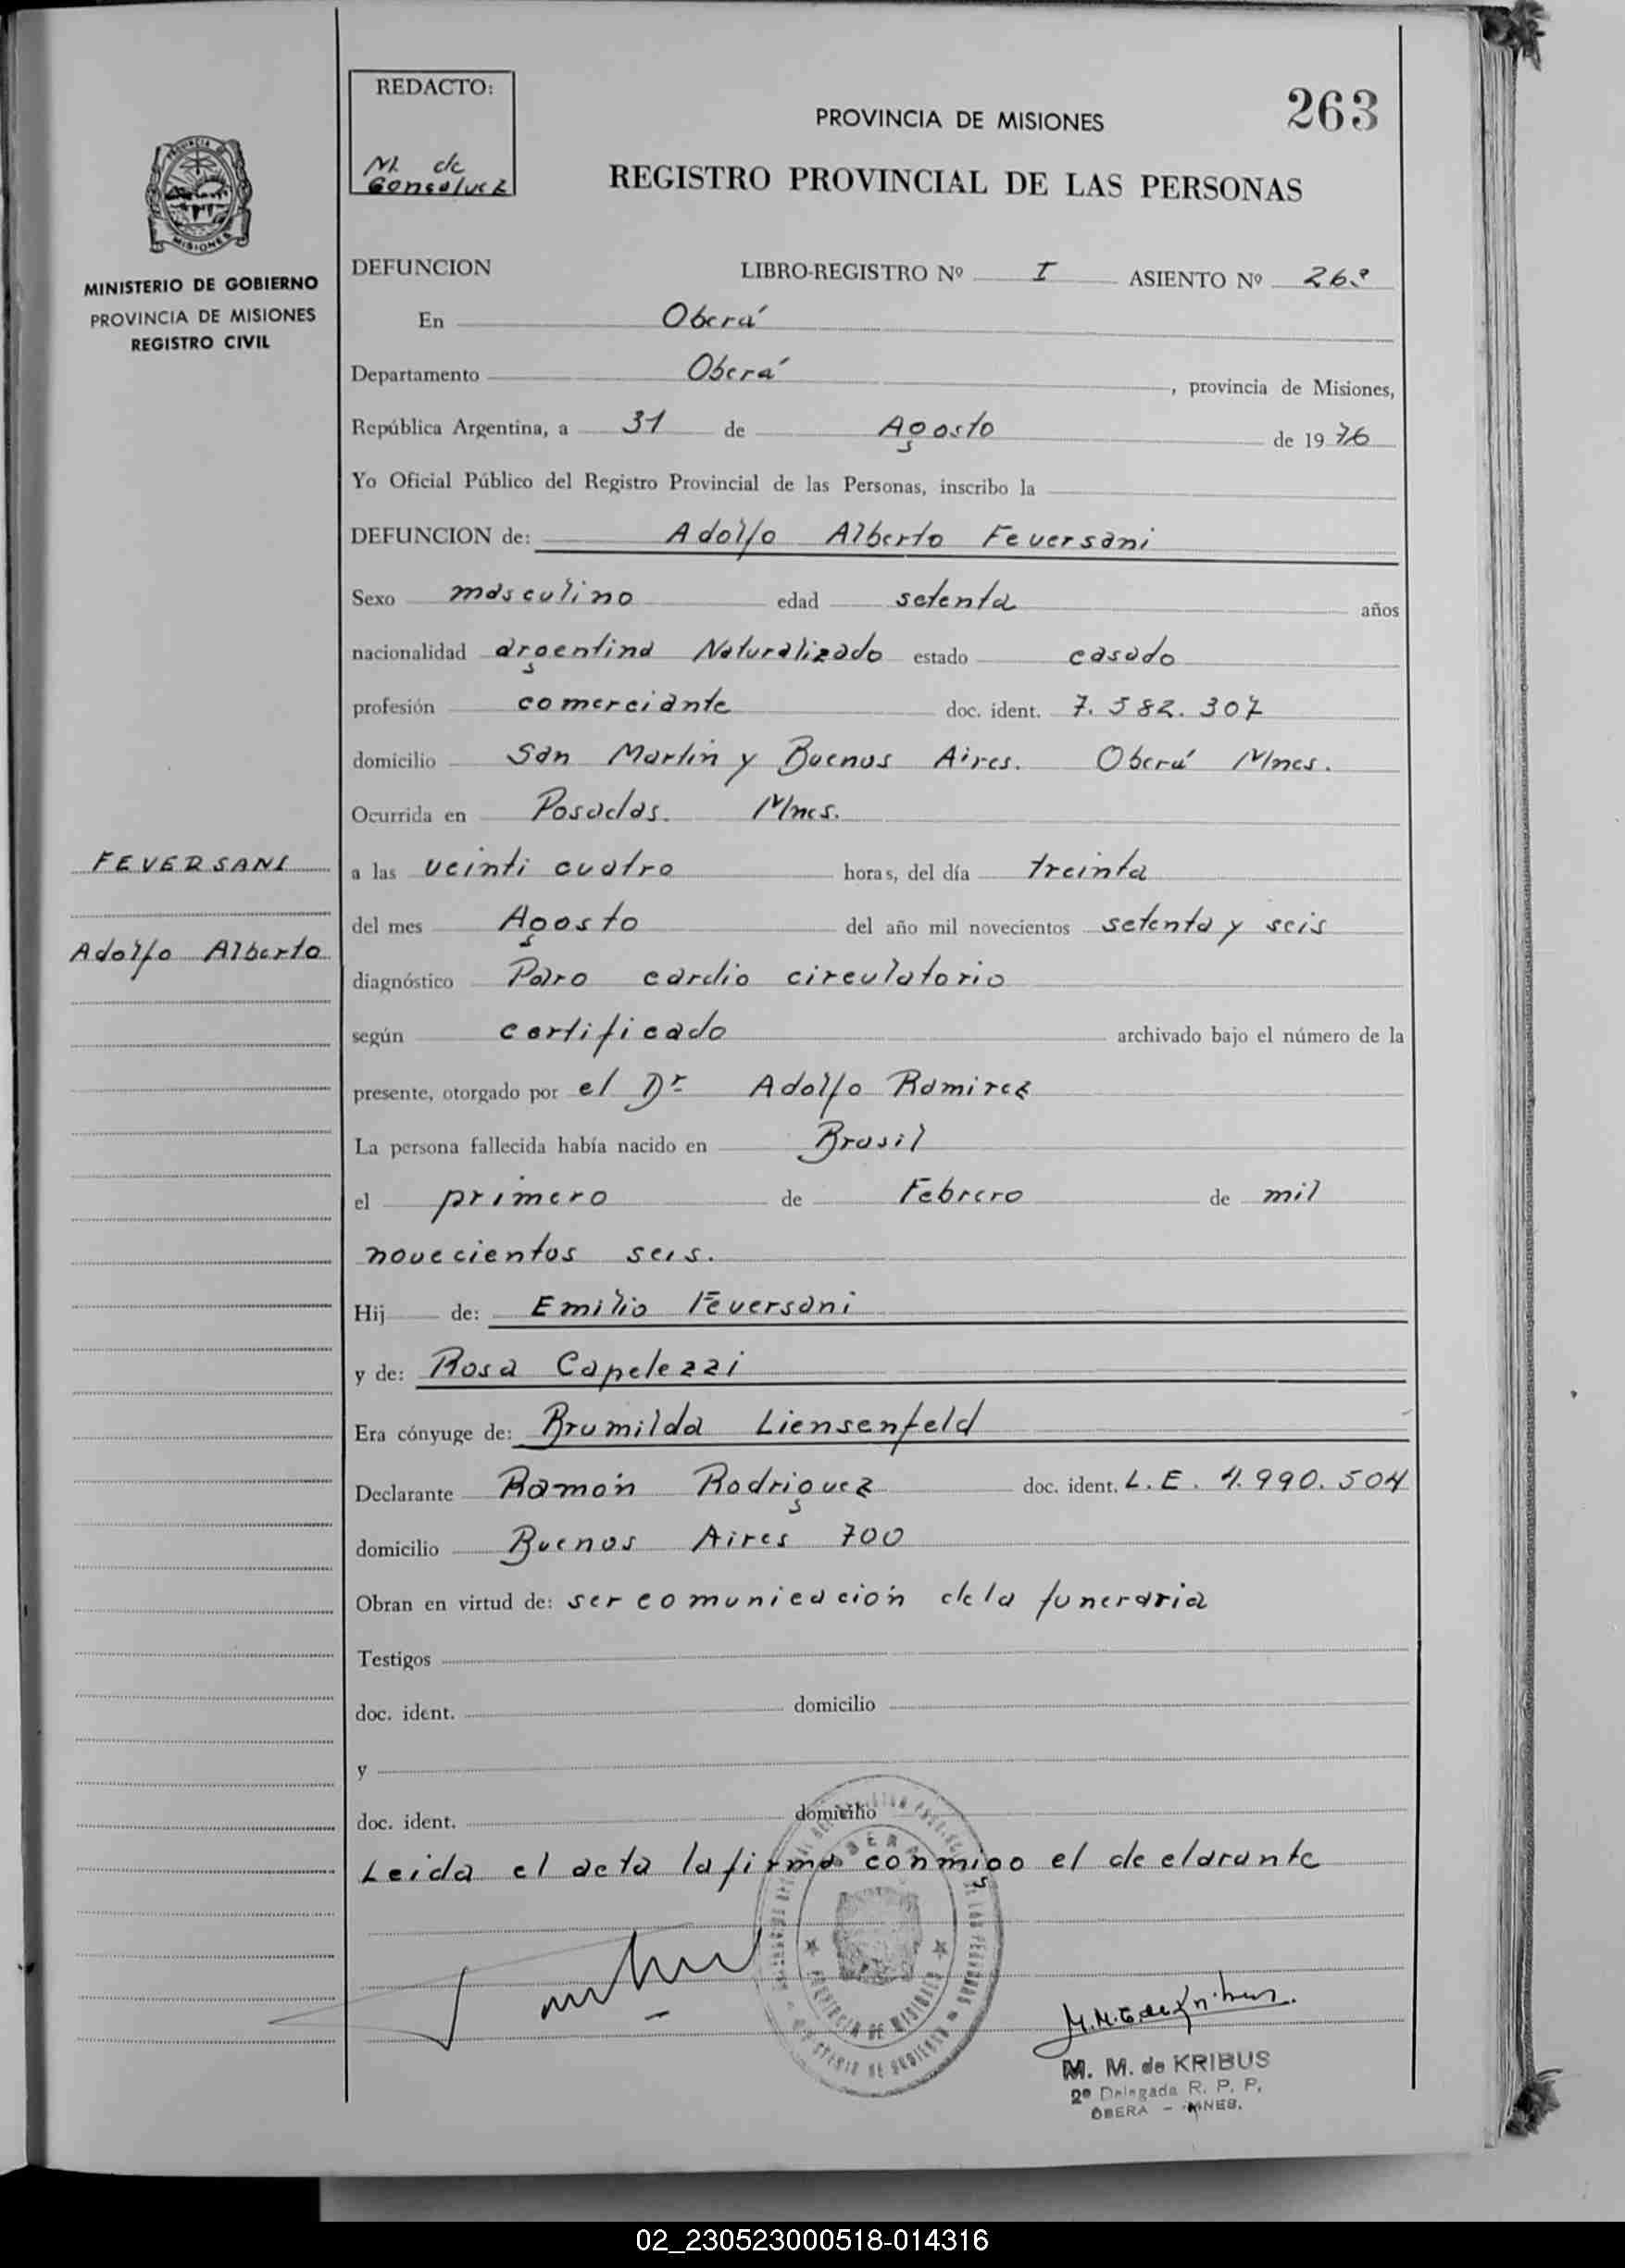 REDACTO:
M. de
Gonsalvez
263
PROVINCIA DE MISIONES
REGISTRO PROVINCIAL DE LAS PERSONAS
MISIONES
MINISTERIO DE GOBIERNO
PROVINCIA DE MISIONES
REGISTRO CIVIL
DEFUNCION LIBRO-REGISTRO Nº I ASIENTO Nº
En Oberá
Departamento Oberá, provincia de Misiones,
República Argentina, a 31 de Agosto de 1976
Yo Oficial Público del Registro Provincial de las Personas, inscribo la
DEFUNCION de: Adolfo Alberto Feversani
Sexo masculino edad setenta años
nacionalidad argentina Naturalizado estado casado
profesión comerciante doc. ident. 7.582.307
domicilio San Martín y Buenos Aires. Oberá Mnes.
Ocurrida en Posadas. Mnes.
FEVERSANI
a las veinti cuatro horas, del día treinta
del mes Agosto del año mil novecientos setenta y seis
Adolfo Alberto
diagnóstico Paro cardio circulatorio
según certificado archivado bajo el número de la
presente, otorgado por el Dr Adolfo Ramirez
La persona fallecida había nacido en Brasil
el primero de Febrero de mil
novecientos seis.
Hij de: Emilio Feversani
y de: Rosa Capelezzi
Era cónyuge de: Brumilda Liensenfeld
Declarante Ramón Rodriguez doc. ident. L.E. 4.990.504
domicilio Buenos Aires 700
Obran en virtud de: ser comunicación de la funeraria
Testigos
doc. ident. domicilio
y
doc. ident. domicilio
Leida el acta la firma conmigo el declarante
PROVINCIA DE MISIONES
M. M. de KRIBUS
2º Delegada R. P. P.
OBERA - MNES.
02_230523000518-014316